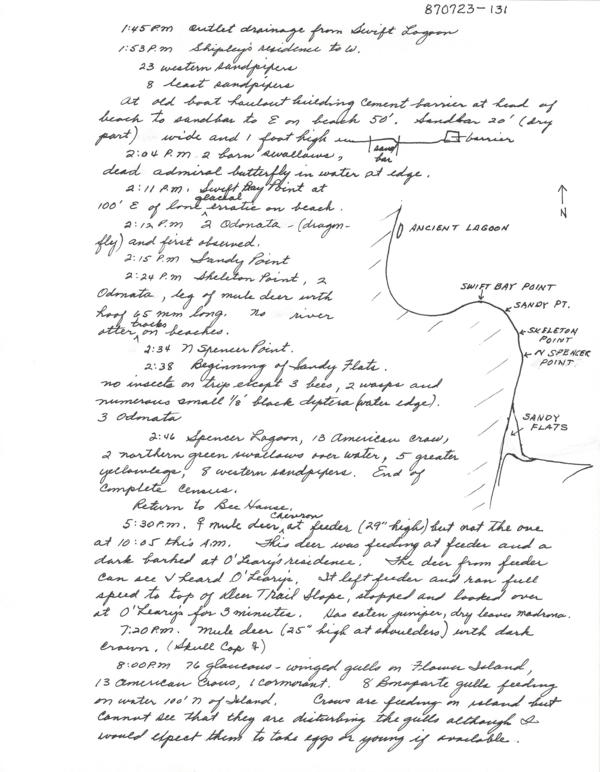 870723-131
1:45 P.M outlet drainage from Swift Lagoon
1:53 P.M Shipley's residence to W.
23 western sandpipers
8 least sandpipers
At old boat haulout building cement barrier at head of
beach to sandbar to E on beach 50'. Sandbar 20' (dry
part) wide and 1 foot high in
sand bar
barrier
2:04 P.M. 2 barn swallows,
dead admiral butterfly in water at edge.
2:11 P.M. Swift Bay Point at
100' E of lone glacial erratic on beach.
2:12 P.M 2 Odonata - (dragon-
fly) and first observed.
2:15 P.M Sandy Point
2:24 P.M Skeleton Point, 2
Odonata, leg of mule deer with
hoof 65 mm long. no river
otter tracks on beaches.
2:34 N Spencer Point.
2:38 Beginning of Sandy Flats.
no insects on trip except 3 bees, 2 wasps and
numerous small 1/8" black diptera (water edge).
3 Odonata
2:46 Spencer Lagoon, 13 American crow,
2 northern green swallows over water, 5 greater
yellowlegs, 8 western sandpipers. End of
Complete Census.
N
ANCIENT LAGOON
SWIFT BAY POINT
SANDY PT.
SKELETON POINT
N SPENCER POINT
SANDY FLATS
Return to Bee House.
5:30 P.M. ♀ mule deer Chevron at feeder (29" high) but not the one
at 10:05 this A.M. This deer was feeding at feeder and a
dark barked at O'Leary's residence. The deer from feeder
can see & heard O'Leary's. It left feeder and ran full
speed to top of Deer Trail Slope, stopped and looked over
at O'Leary's for 3 minutes. Has eaten juniper, dry leaves madrona.
7:20 P.M. Mule deer (25" high at shoulders) with dark
crown. (Skull Cap ♀)
8:00 P.M 76 glaucous-winged gulls on Flower Island,
13 American Crows, 1 cormorant. 8 Bonaparte gulls feeding
on water 100' N of Island. Crows are feeding on island but
cannot see that they are disturbing the gulls although I
would expect them to take eggs or young if available.